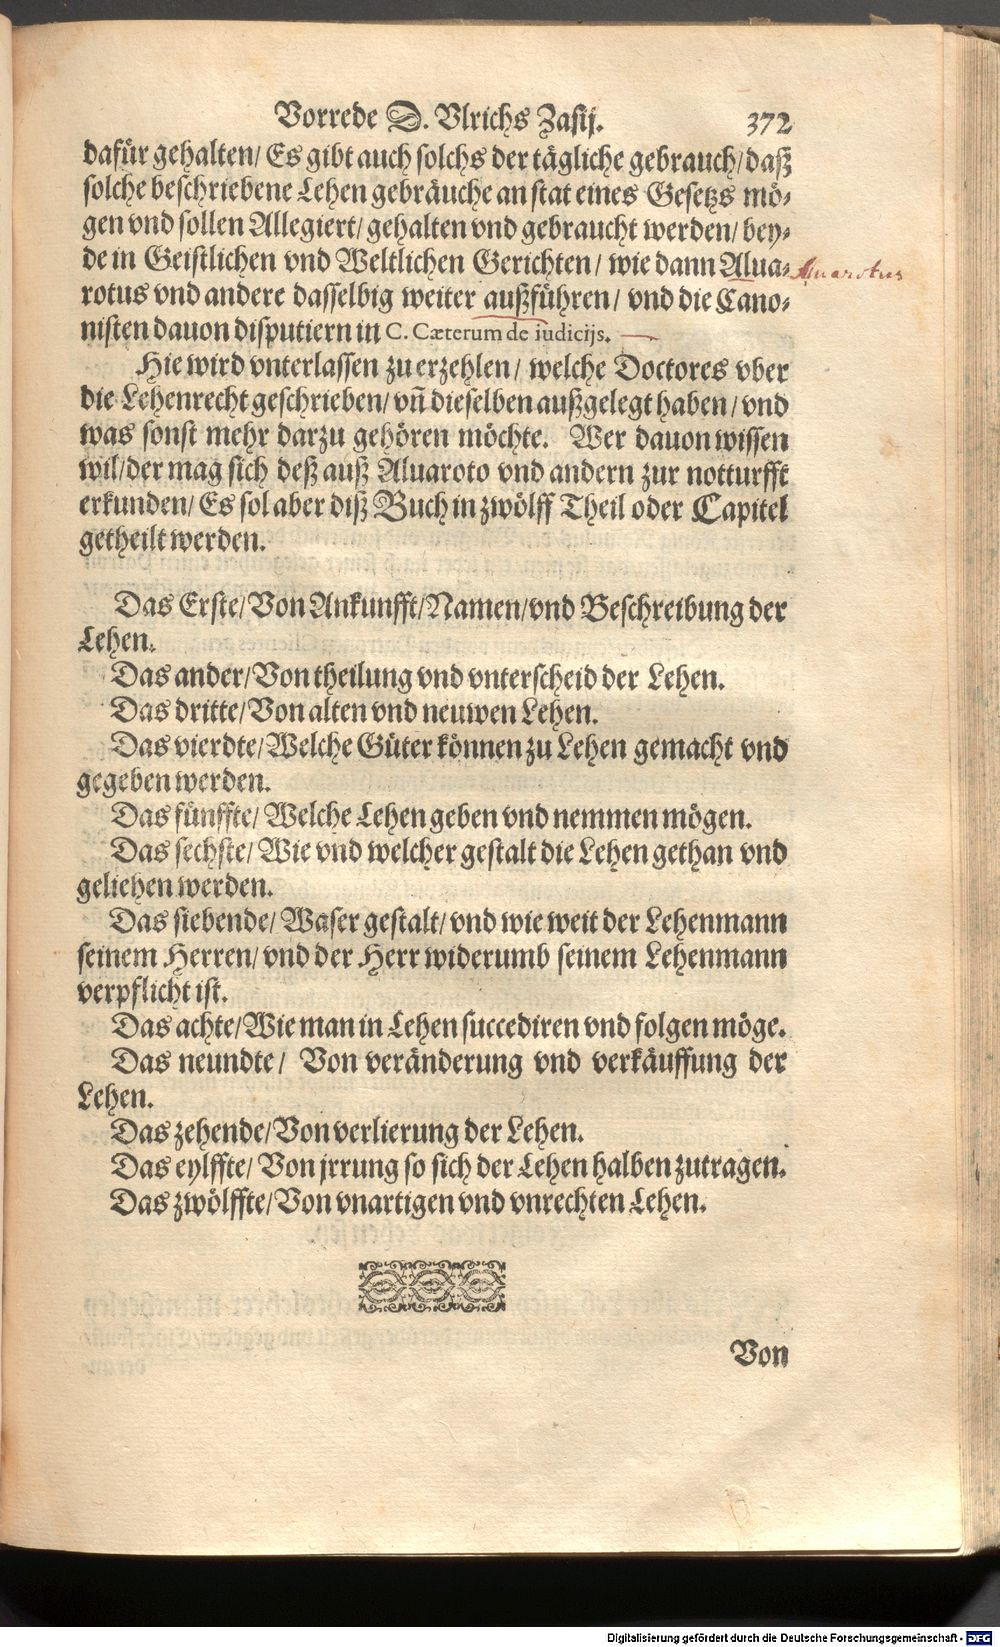 Vorrede D. Vlrichs Zasij. 372
dafür gehalten/ Es gibt auch solchs der tägliche gebrauch/ daß
solche beschriebene Lehen gebräuche an stat eines Gesetzs mö-
gen vnd sollen Allegiert/ gehalten vnd gebraucht werden/ bey-
de in Geistlichen vnd Weltlichen Gerichten/ wie dann Alua-
Aluarotus
rotus vnd andere dasselbig weiter außführen/ vnd die Cano-
nisten dauon disputiern in C. Cæterum de iudicijs.
Hie wird vnterlassen zu erzehlen/ welche Doctores vber
die Lehenrecht geschrieben/ vñ dieselben außgelegt haben/ vnd
was sonst mehr darzu gehören möchte. Wer dauon wissen
wil/ der mag sich deß auß Aluaroto vnd andern zur notturfft
erkunden/ Es sol aber diß Buch in zwölff Theil oder Capitel
getheilt werden.
Das Erste/ Von Ankunfft/ Namen/ vnd Beschreibung der
Lehen.
Das ander/ Von theilung vnd vnterscheid der Lehen.
Das dritte/ Von alten vnd neuwen Lehen.
Das vierdte/ Welche Güter können zu Lehen gemacht vnd
gegeben werden.
Das fünffte/ Welche Lehen geben vnd nemmen mögen.
Das sechste/ Wie vnd welcher gestalt die Lehen gethan vnd
geliehen werden.
Das siebende/ Waser gestalt/ vnd wie weit der Lehenmann
seinem Herren/ vnd der Herr widerumb seinem Lehenmann
verpflicht ist.
Das achte/ Wie man in Lehen succediren vnd folgen möge.
Das neundte/ Von veränderung vnd verkäuffung der
Lehen.
Das zehende/ Von verlierung der Lehen.
Das eylffte/ Von jrrung so sich der Lehen halben zutragen.
Das zwölffte/ Von vnartigen vnd vnrechten Lehen.
Von
Digitalisierung gefördert durch die Deutsche Forschungsgemeinschaft - DFG